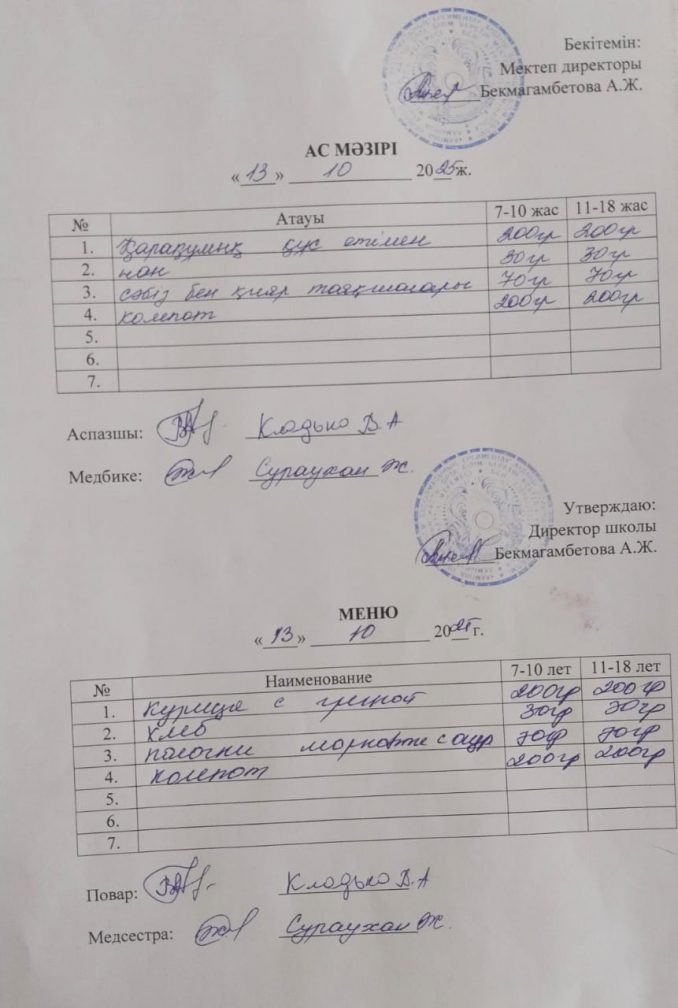 Бекітемін:
Мектеп директоры
Бекмагамбетова А.Ж.
АС МӘЗІРІ
«13» 10 2025 ж.
№ Атауы 7-10 жас 11-18 жас
1. Қарақұмық құс етімен 200гр 200гр
2. нан 30гр 30гр
3. сәбіз бен қияр таяқшалары 70гр 70гр
4. компот 200гр 200гр
5.
6.
7.
Аспазшы: Кладько В.А
Медбике: Сураухан Ж.
Утверждаю:
Директор школы
Бекмагамбетова А.Ж.
МЕНЮ
«13» 10 2025 г.
№ Наименование 7-10 лет 11-18 лет
1. Курица с гречкой 200гр 200гр
2. хлеб 30гр 30гр
3. палочки 70гр 70гр
4. компот 200гр 200гр
5.
6.
7.
Повар: Кладько В.А
Медсестра: Сураухан Ж.